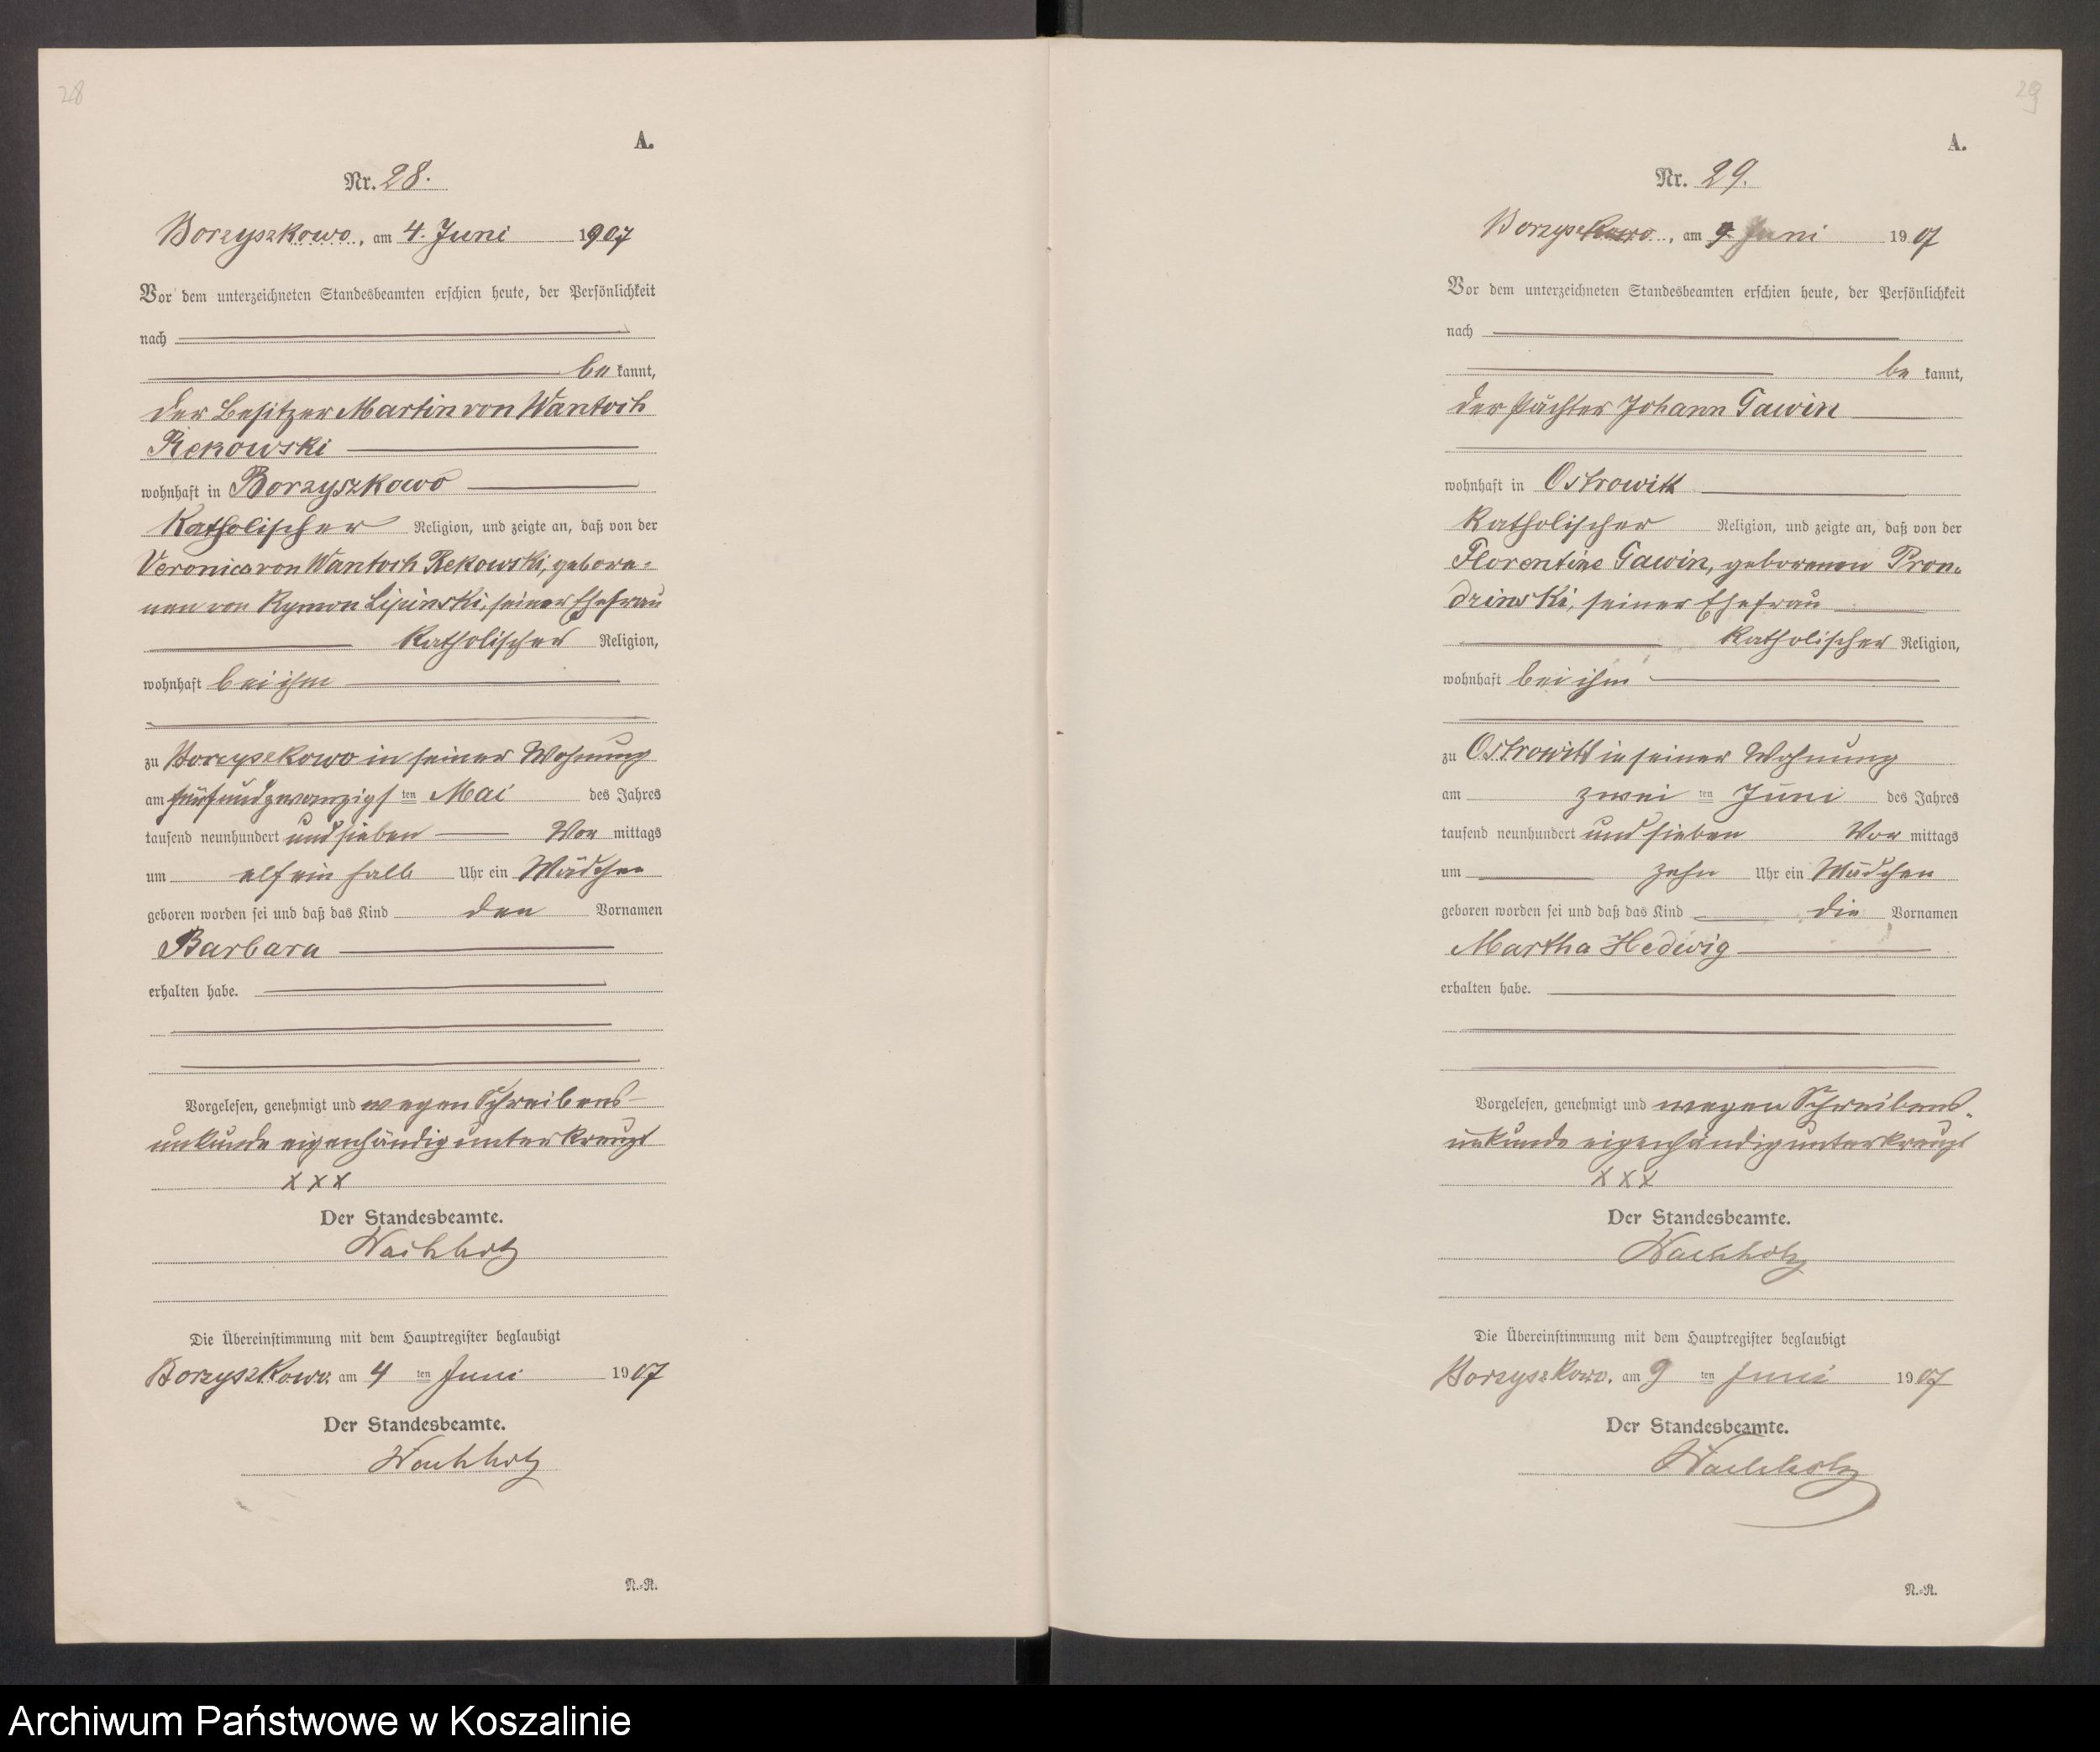 28
A.
Nr. 28.
Borzyszkowo, am 4. Juni 1907
Vor dem unterzeichneten Standesbeamten erschien heute, der Persönlichkeit
nach
be kannt,
der Besitzer Martin von Wantoch
Rekowski
wohnhaft in Borzyszkowo
Katholischer Religion, und zeigte an, daß von der
Veronica von Wantoch Rekowski, gebore-
nen von Rymon Lipinski, seiner Ehefrau
Katholischer Religion,
wohnhaft bei ihm
zu Borzyszkowo in seiner Wohnung
am fünfundzwanzigs ten Mai des Jahres
tausend neunhundert und sieben Vor mittags
um elf ein halb Uhr ein Mädchen
geboren worden sei und daß das Kind den Vornamen
Barbara
erhalten habe.
Vorgelesen, genehmigt und wegen Schreibens-
unkunde eigenhändig unterkreuzt
x x x
Der Standesbeamte.
Wachholz
Die Übereinstimmung mit dem Hauptregister beglaubigt
Borzyszkowo. am 4 ten Juni 1907
Der Standesbeamte.
Wachholz
N.-R.
29
A.
Nr. 29.
Borzyszkowo, am 9. Juni 1907
Vor dem unterzeichneten Standesbeamten erschien heute, der Persönlichkeit
nach
be kannt,
der Pächter Johann Gawin
wohnhaft in Ostrowitt
Katholischer Religion, und zeigte an, daß von der
Florentine Gawin, geborenen Pron-
dzinski, seiner Ehefrau
Katholischer Religion,
wohnhaft bei ihm
zu Ostrowitt in seiner Wohnung
am zwei ten Juni des Jahres
tausend neunhundert und sieben Vor mittags
um zehn Uhr ein Mädchen
geboren worden sei und daß das Kind die Vornamen
Martha Hedwig
erhalten habe.
Vorgelesen, genehmigt und wegen Schreibens-
unkunde eigenhändig unterkreuzt
x x x
Der Standesbeamte.
Wachholz
Die Übereinstimmung mit dem Hauptregister beglaubigt
Borzyszkowo. am 9 ten Juni 1907
Der Standesbeamte.
Wachholz
N.-R.
Archiwum Państwowe w Koszalinie